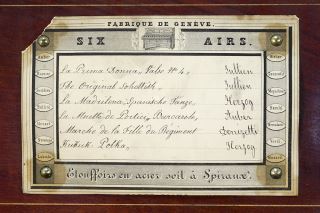 FABRIQUE DE GENÈVE.
SIX AIRS.
La Prima Donna, Valse Nº 4, Jullien
The Original Schottish, Jullien
La Madrilena, Spanische Tänze, Herzog
La Muette de Portici, Barcarole, Auber
Marche de la Fille du Regiment Donizetti
Polka, Herzog
Etouffoirs en acier soit à Spiraux.